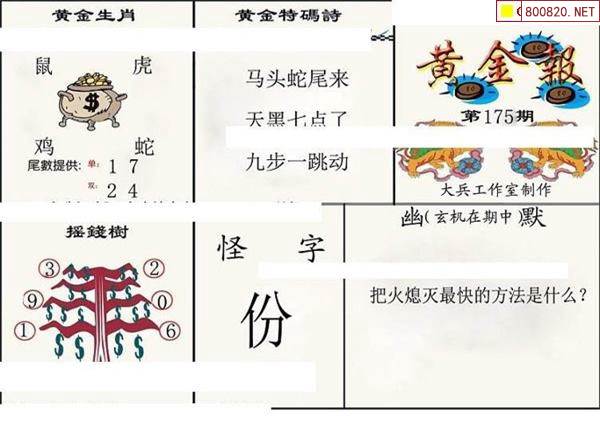 黄金生肖
鼠 虎
$
鸡 蛇
尾數提供: 单: 1 7
双: 2 4
黄金特碼詩
马头蛇尾来
天黑七点了
九步一跳动
800820.NET
黄金報
第175期
大兵工作室制作
摇錢樹
3 2
9 0
1 6
怪 字
份
幽(玄机在期中)默
把火熄灭最快的方法是什么?